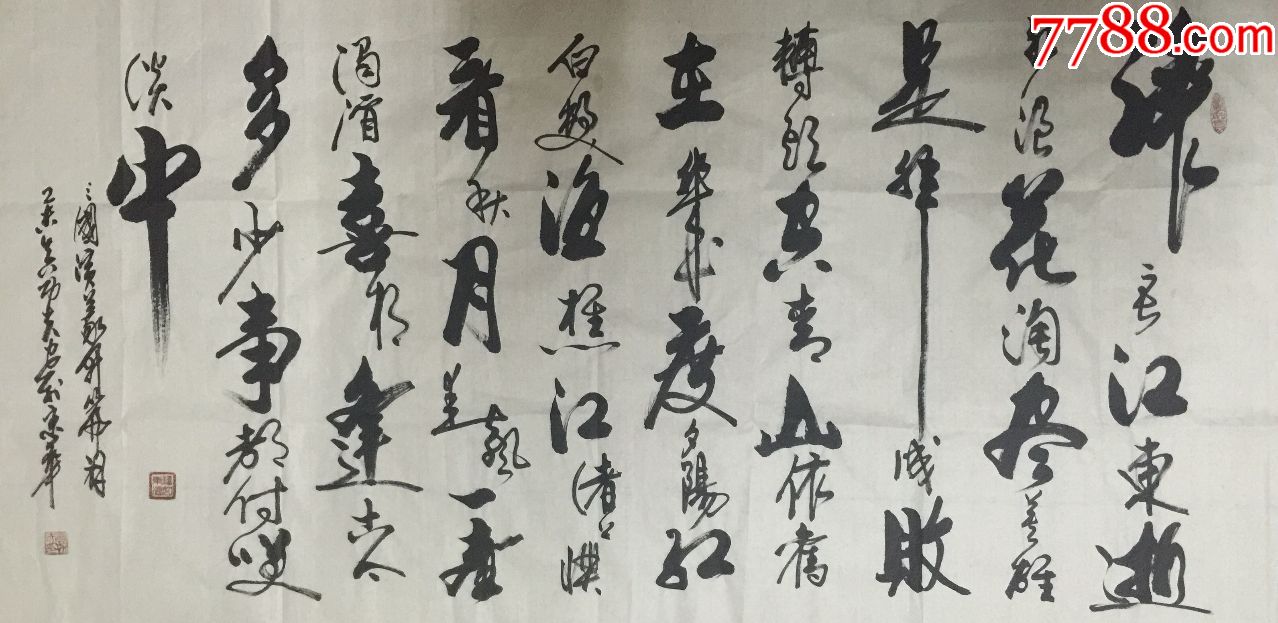 7788.com
滚々長江東逝
水浪花淘尽英雄
是非成敗
轉頭空青山依舊
在幾度夕陽红
白髮渔樵江渚上慣
看秋月春風一壺
濁酒喜相逢古今
多少事都付笑
淡中
三國演義開篇詞
乙未